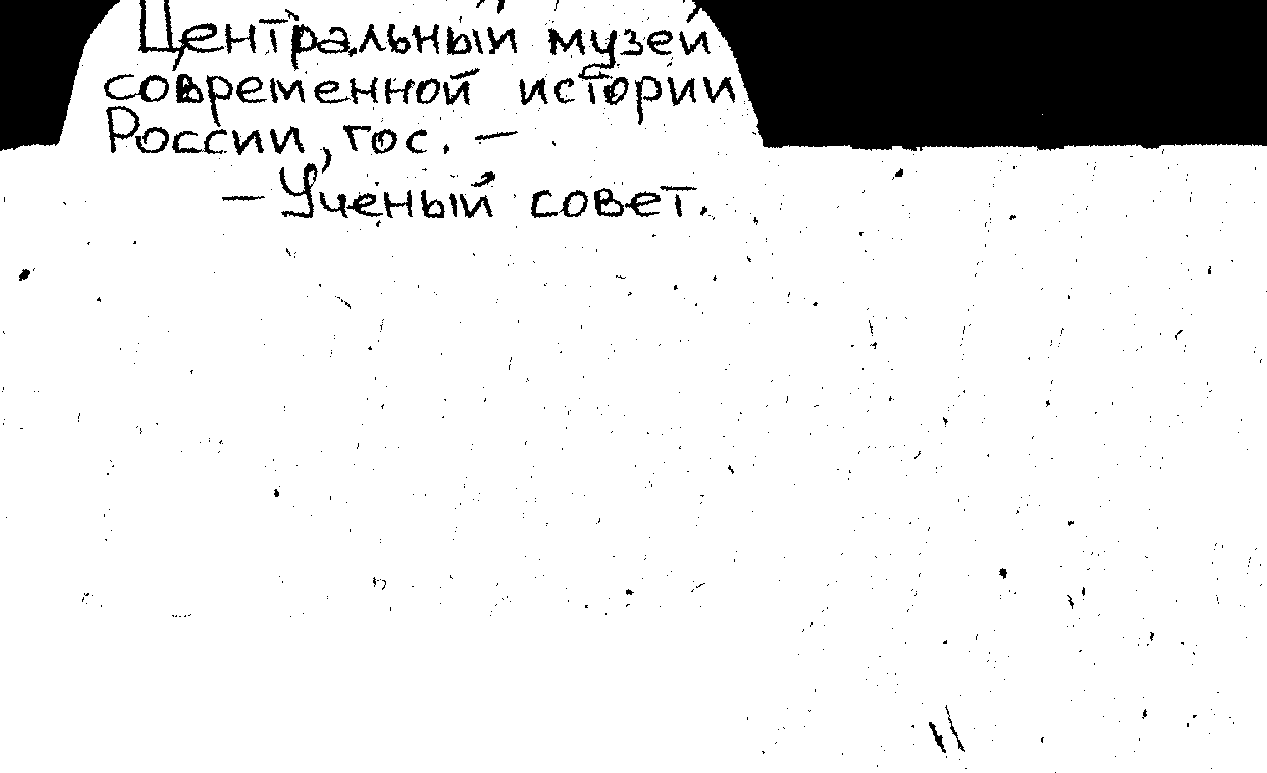 Центральный музей
современной истории
России, гос. –
– Ученый совет.